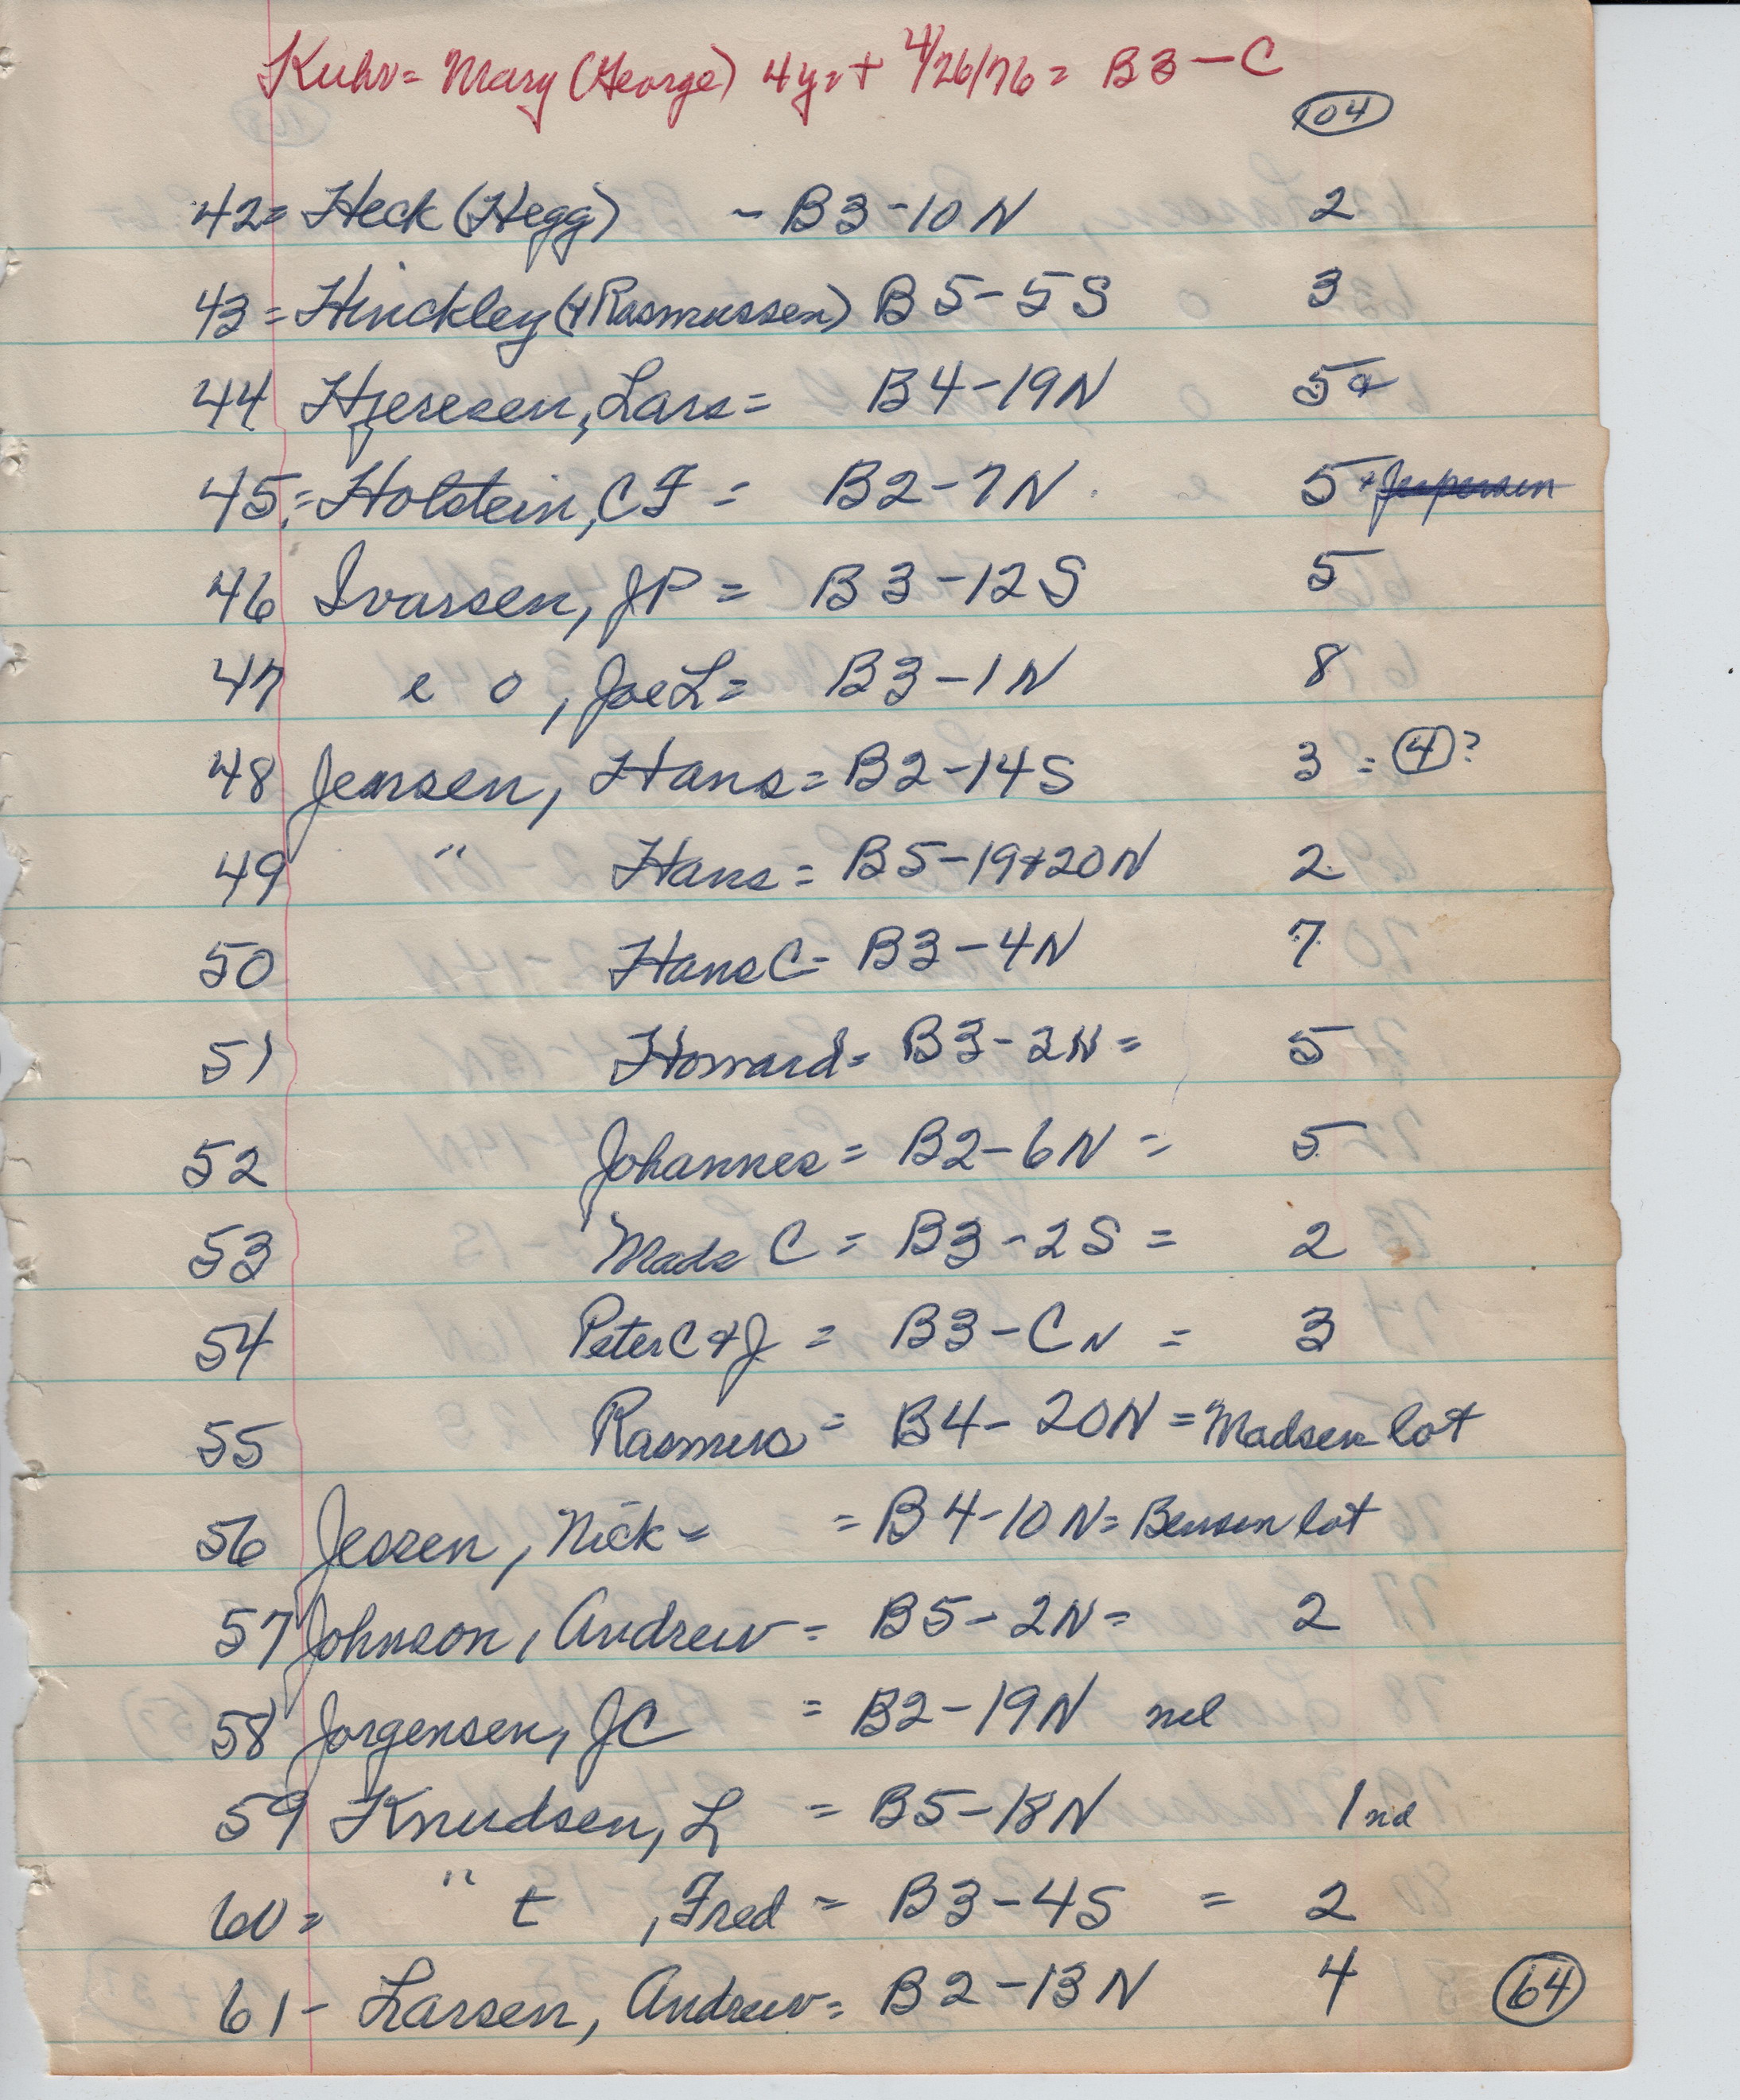 Kuhr = Mary (George) 4yr + 4/26/76 = B3 - C
104
42 = Heck (Hegg) - B3-10N 2
43 = Hinckley (+ Rasmussen) B5-5S 3
44 Hjeresen, Lars = B4-19N 5+
45. = Holstein, CF = B2-7N. 5 + Jespersen
46 Ivarsen, JP = B3-12S 5
47 e o, Joe L = B3-1N 8
48 Jensen, Hans = B2-14S 3 = 4?
49 " Hans = B5-19+20N 2
50 Hans C - B3-4N 7
51 Howard = B3-2N = 5
52 Johannes = B2-6N = 5
53 Mads C = B3-2S = 2
54 Peter C + J = B3-CN = 3
55 Rasmus = B4-20N = Madsen lot
56 Jessen, Nick = = B4-10N = Bensen lot
57 Johnson, Andrew = B5-2N = 2
58 Jorgensen, JC = B2-19N
59 Knudsen, L = B5-18N 1 nd
60 = " t, Fred = B3-4S = 2
61 - Larsen, Andrew = B2-13N 4 64